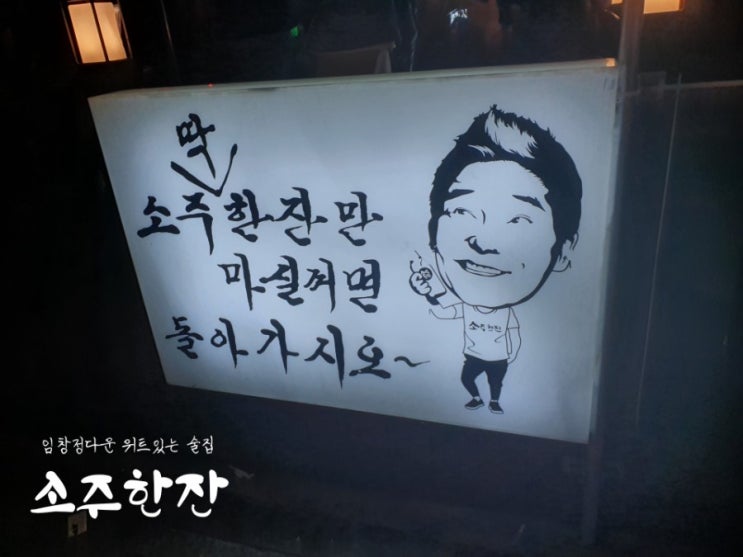 딱
소주한잔만
마실꺼면
돌아가시오~
소주한잔
임창정다운 위트있는 술집
소주한잔